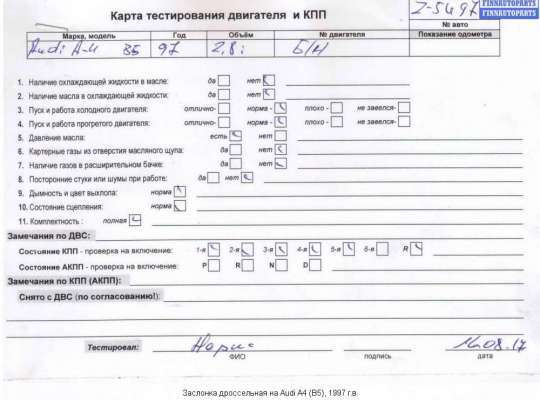 FINNAUTOPARTS
FINNAUTOPARTS
Карта тестирования двигателя и КПП
Z-5497
№ авто
Марка, модель Год Объём № двигателя Показание одометра
Audi A-4 B5 97 2,8i Б/н
1. Наличие охлаждающей жидкости в масле: да нет
2. Наличие масла в охлаждающей жидкости: да нет
3. Пуск и работа холодного двигателя: отлично- норма - плохо - не завелся-
4. Пуск и работа прогретого двигателя: отлично- норма - плохо - не завелся-
5. Давление масла: есть нет
6. Картерные газы из отверстия масляного щупа: да нет
7. Наличие газов в расширительном бачке: да нет
8. Посторонние стуки или шумы при работе: да нет
9. Дымность и цвет выхлопа: норма
10. Состояние сцепления: норма
11. Комплектность : полная
Замечания по ДВС:
Состояние КПП - проверка на включение: 1-я 2-я 3-я 4-я 5-я 6-я R
Состояние АКПП - проверка на включение: P R N D
Замечания по КПП (АКПП):
Снято с ДВС (по согласованию!):
Тестировал: 08.17
ФИО подпись дата
Заслонка дроссельная на Audi A4 (B5), 1997 г.в.